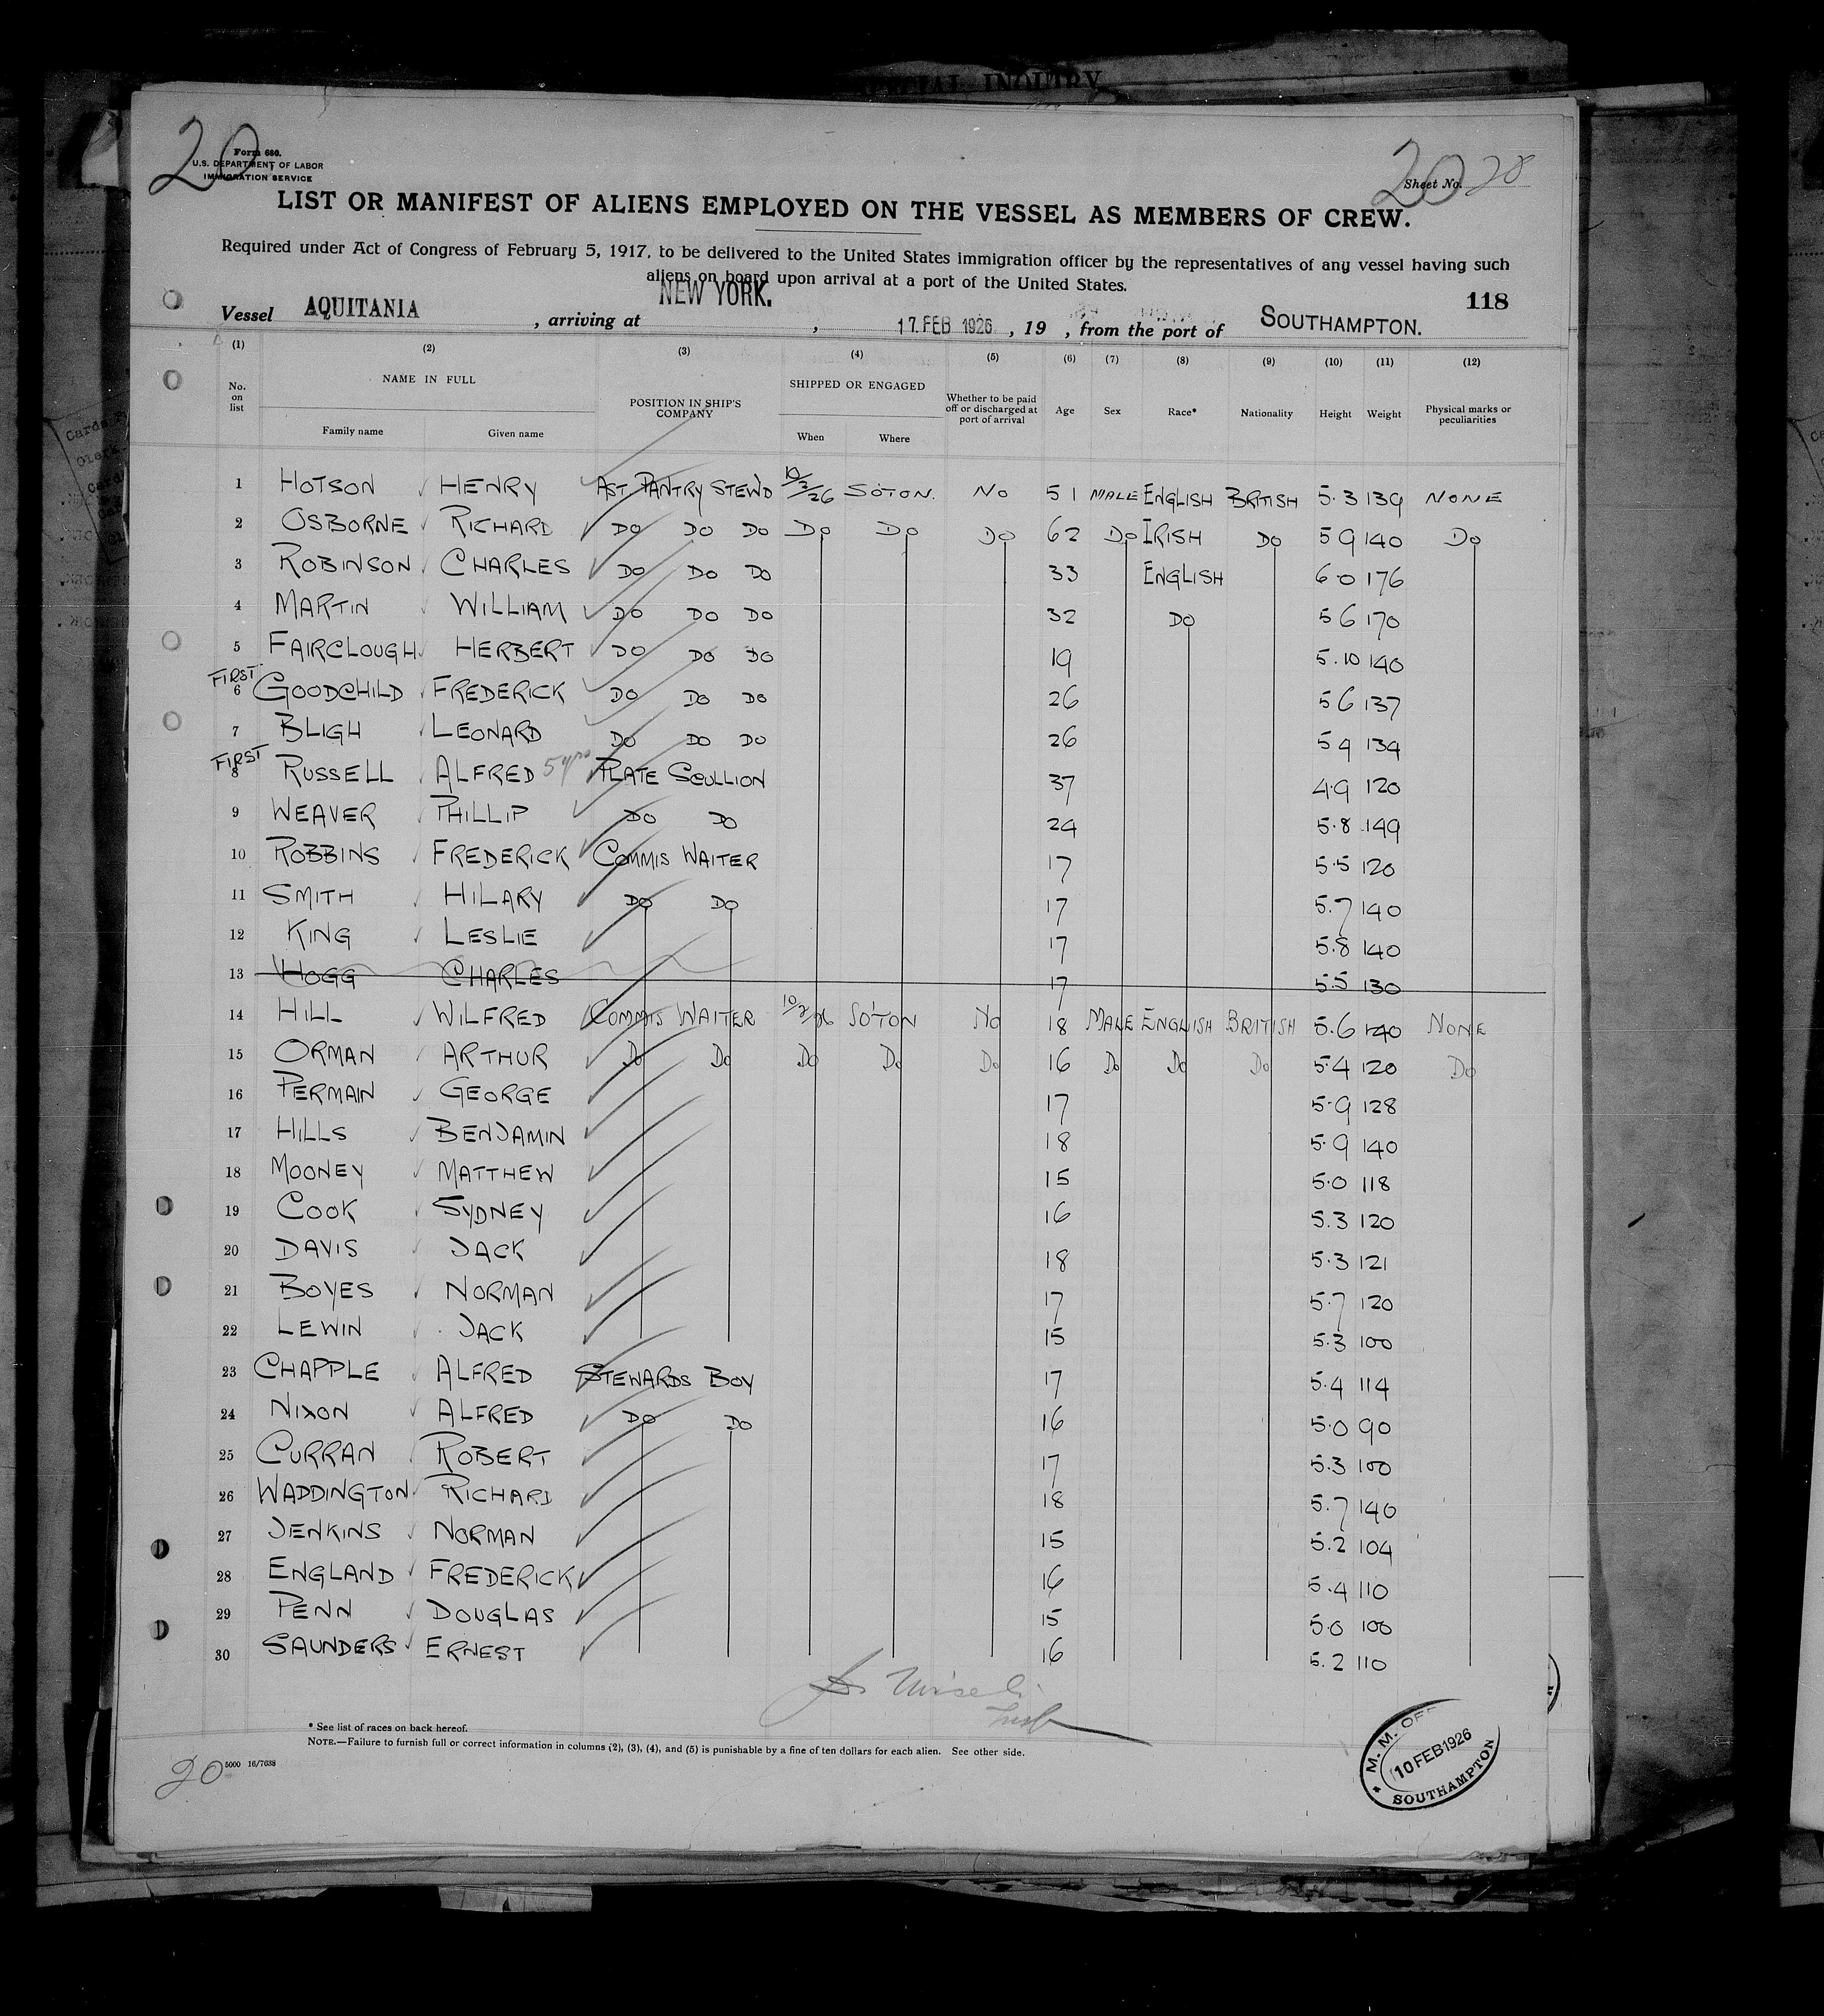 SPECIAL INQUIRY
20
Form 680.
U.S. DEPARTMENT OF LABOR
IMMIGRATION SERVICE
20
Sheet No. 20
LIST OR MANIFEST OF ALIENS EMPLOYED ON THE VESSEL AS MEMBERS OF CREW.
Required under Act of Congress of February 5, 1917, to be delivered to the United States immigration officer by the representatives of any vessel having such
aliens on board upon arrival at a port of the United States.
118
Vessel AQUITANIA , arriving at NEW YORK. , 17. FEB 1926 , 19 , from the port of SOUTHAMPTON.
(1) (2) (3) (4) (5) (6) (7) (8) (9) (10) (11) (12)
No. on list NAME IN FULL POSITION IN SHIP'S COMPANY SHIPPED OR ENGAGED Whether to be paid off or discharged at port of arrival Age Sex Race* Nationality Height Weight Physical marks or peculiarities
Family name Given name When Where
1 HOTSON HENRY AST PANTRY STEWD 10/2/26 SOTON. NO 51 MALE ENGLISH BRITISH 5.3 139 NONE
2 OSBORNE RICHARD DO DO DO DO DO DO 62 DO IRISH DO 5 9 140 DO
3 ROBINSON CHARLES DO DO DO 33 ENGLISH 6.0 176
4 MARTIN WILLIAM DO DO DO 32 DO 5 6 170
5 FAIRCLOUGH HERBERT DO DO DO 19 5.10 140
FIRST
6 GOODCHILD FREDERICK DO DO DO 26 5 6 137
7 BLIGH LEONARD DO DO DO 26 5 9 134
FIRST
8 RUSSELL ALFRED 5 yrs PLATE SCULLION 37 4.9 120
9 WEAVER PHILLIP DO DO 24 5.8 149
10 ROBBINS FREDERICK COMMIS WAITER 17 5.5 120
11 SMITH HILARY DO DO 17 5.7 140
12 KING LESLIE 17 5.8 140
13 HOGG CHARLES 17 5.5 130
14 HILL WILFRED COMMIS WAITER 10/2/26 SO'TON NO 18 MALE ENGLISH BRITISH 5.6 140 NONE
15 ORMAN ARTHUR DO DO DO DO DO 16 DO DO DO 5.4 120 DO
16 PERMAIN GEORGE 17 5.9 128
17 HILLS BENJAMIN 18 5.9 140
18 MOONEY MATTHEW 15 5.0 118
19 COOK SYDNEY 16 5.3 120
20 DAVIS JACK 18 5.3 121
21 BOYES NORMAN 17 5.7 120
22 LEWIN JACK 15 5.3 100
23 CHAPPLE ALFRED STEWARDS BOY 17 5.4 114
24 NIXON ALFRED DO DO 16 5.0 90
25 CURRAN ROBERT 17 5.3 100
26 WADDINGTON RICHARD 18 5.7 140
27 JENKINS NORMAN 15 5.2 104
28 ENGLAND FREDERICK 16 5.4 110
29 PENN DOUGLAS 15 5.0 100
30 SAUNDERS ERNEST 16 5.2 110
* See list of races on back hereof.
NOTE.—Failure to furnish full or correct information in columns (2), (3), (4), and (5) is punishable by a fine of ten dollars for each alien. See other side.
20 5000 16/7638
M. M. OFF
10 FEB 1926
SOUTHAMPTON